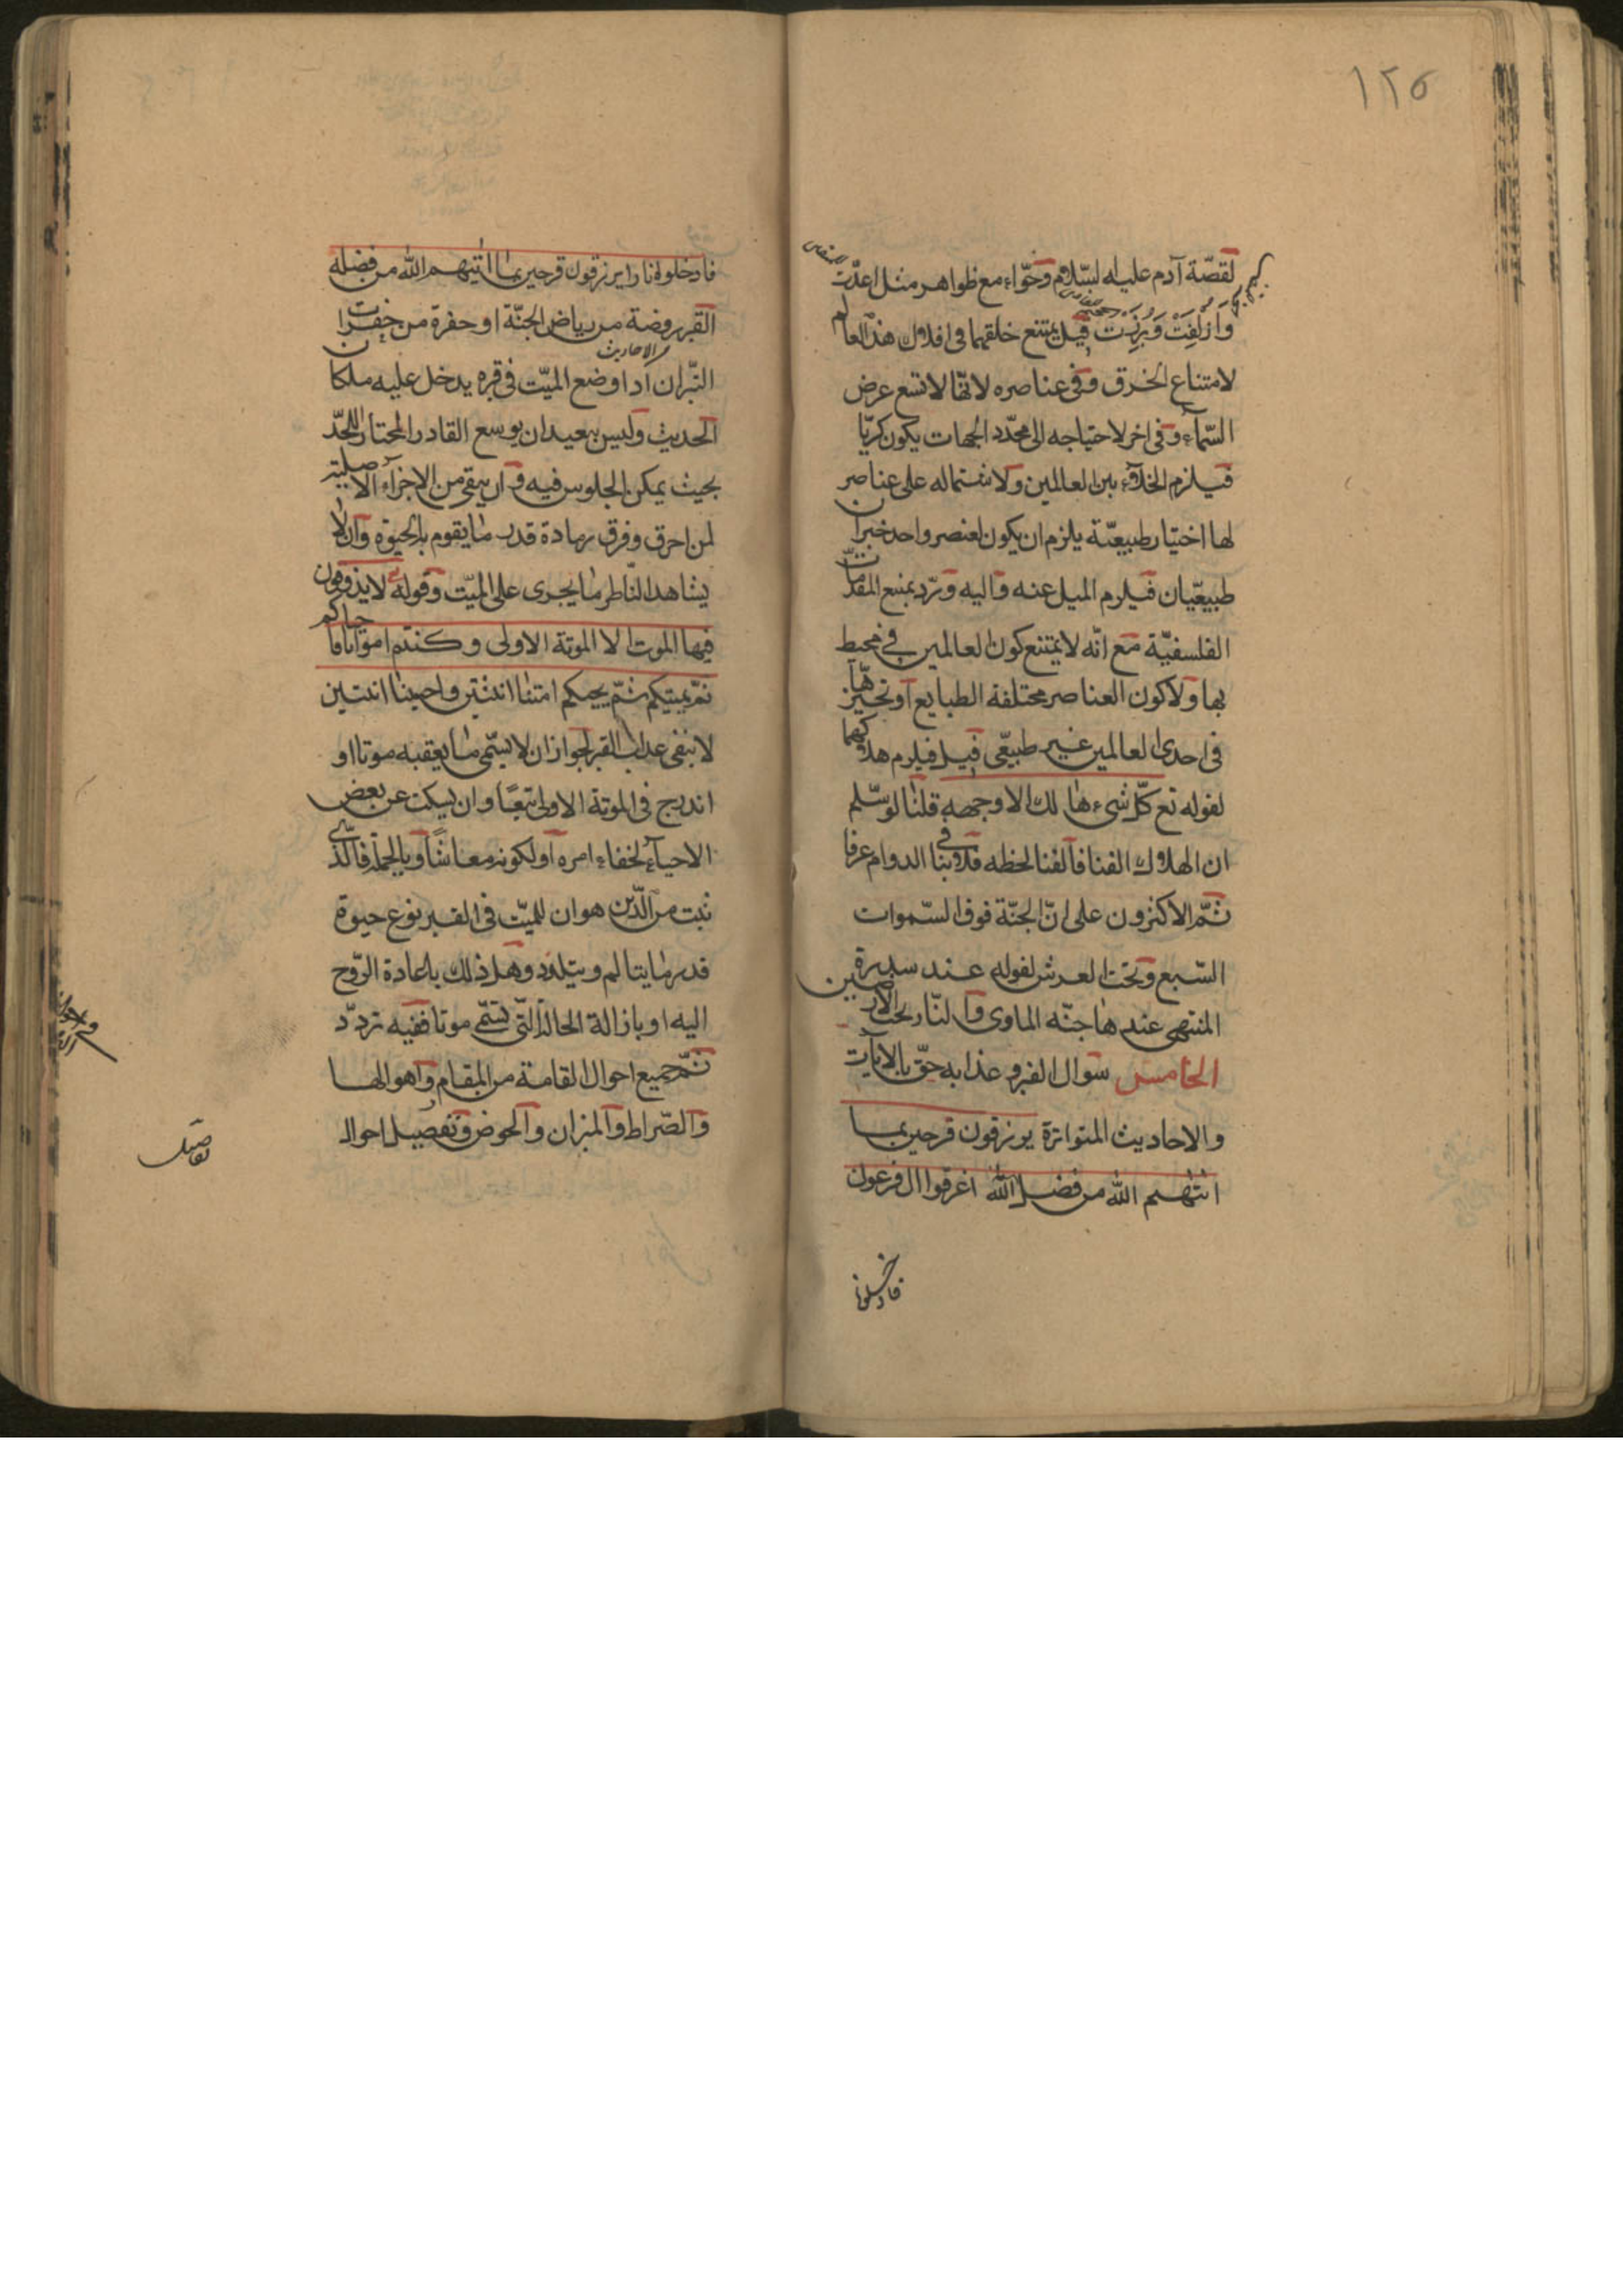 ١٢٥
لقصّة آدم عليه السّلام وحوّاء مع ظواهر مثل اعدّت
وازلفت وبرزت قيل يمتنع خلقهما فى افلاك هذا العالم
لامتناع الخرق وفى عناصره لانّها لا تسع عرض
السّماء وفى اخر لاحتياجه الى محدّد الجهات يكون كريّا
فيلزم الخلاء بين العالمين ولاشتماله على عناصر
لها اختيار طبيعيّة يلزم ان يكون لعنصر واحد خيران
طبيعيّان فيلزم الميل عنه واليه وردّ بمنع المقدّمات
الفلسفيّة مع انّه لا يمتنع كون العالمين فى محيط
بهما ولا كون العناصر مختلفة الطبايع او تحيّزها
فى احدى العالمين غير طبيعّى قيل فيلزم هلاكهما
لقوله تع كلّ شىء هالك الا وجهه قلنا لو سلّم
ان الهلاك الفنا فالفنا لحظه فلا ينافى الدوام عرفا
ثمّ الاكثرون على انّ الجنّة فوق السّموات
السّبع وتحت العرش لقوله عند سدرة
المنتهى عندها جنّه الماوى والنّار تحت الارضين
الخامس سوال القبر وعذابه حقّ بالايات
والاحاديث المتواترة يرزقون فرحين بما
اتيهم الله من فضل الله اغرقوا ال فرعون
فادخلوا
فادخلوا نارا يرزقون فرحين بما اتيهم الله من فضله
القبر روضة من رياض الجنّة او حفرة من حفرات
النّيران
الاحاديث
اذا وضع الميّت فى قبره يدخل عليه ملكان
الحديث وليس ببعيد ان يوسع القادر المختار اللحد
بحيث يمكن الجلوس فيه وان يبقى من الاجزاء الاصلية
لمن احرق وفرق رماده قدر ما يقوم به الحيوة وان لا
يشاهد النّاظر ما يجرى على الميّت وقوله تع لا يذوقون
فيها الموت الا الموتة الاولى وكنتم امواتا فاحياكم
ثم يميتكم ثمّ يحيكم امتنا اثنتين واحييتنا اثنتين
لا ينفى عذاب القبر لجواز ان لا يسمّى ما يعقبه موتا او
اندرج فى الموتة الاولى تبعًا وان يسكت عن بعض
الاحياء لخفاء امره او لكونه معاشًا وبالجملة فالّذى
ثبت من الدّين هو ان للميّت فى القبر نوع حيوة
قدر ما يتالم ويتلذد وهل ذلك باعادة الرّوح
اليه او بازالة الحالة الّتى تسمّى موتا ففيه تردّد
ثمّ جميع احوال القامة من المقام واهوالها
والصّراط والميزان والحوض وتفصيل احوال